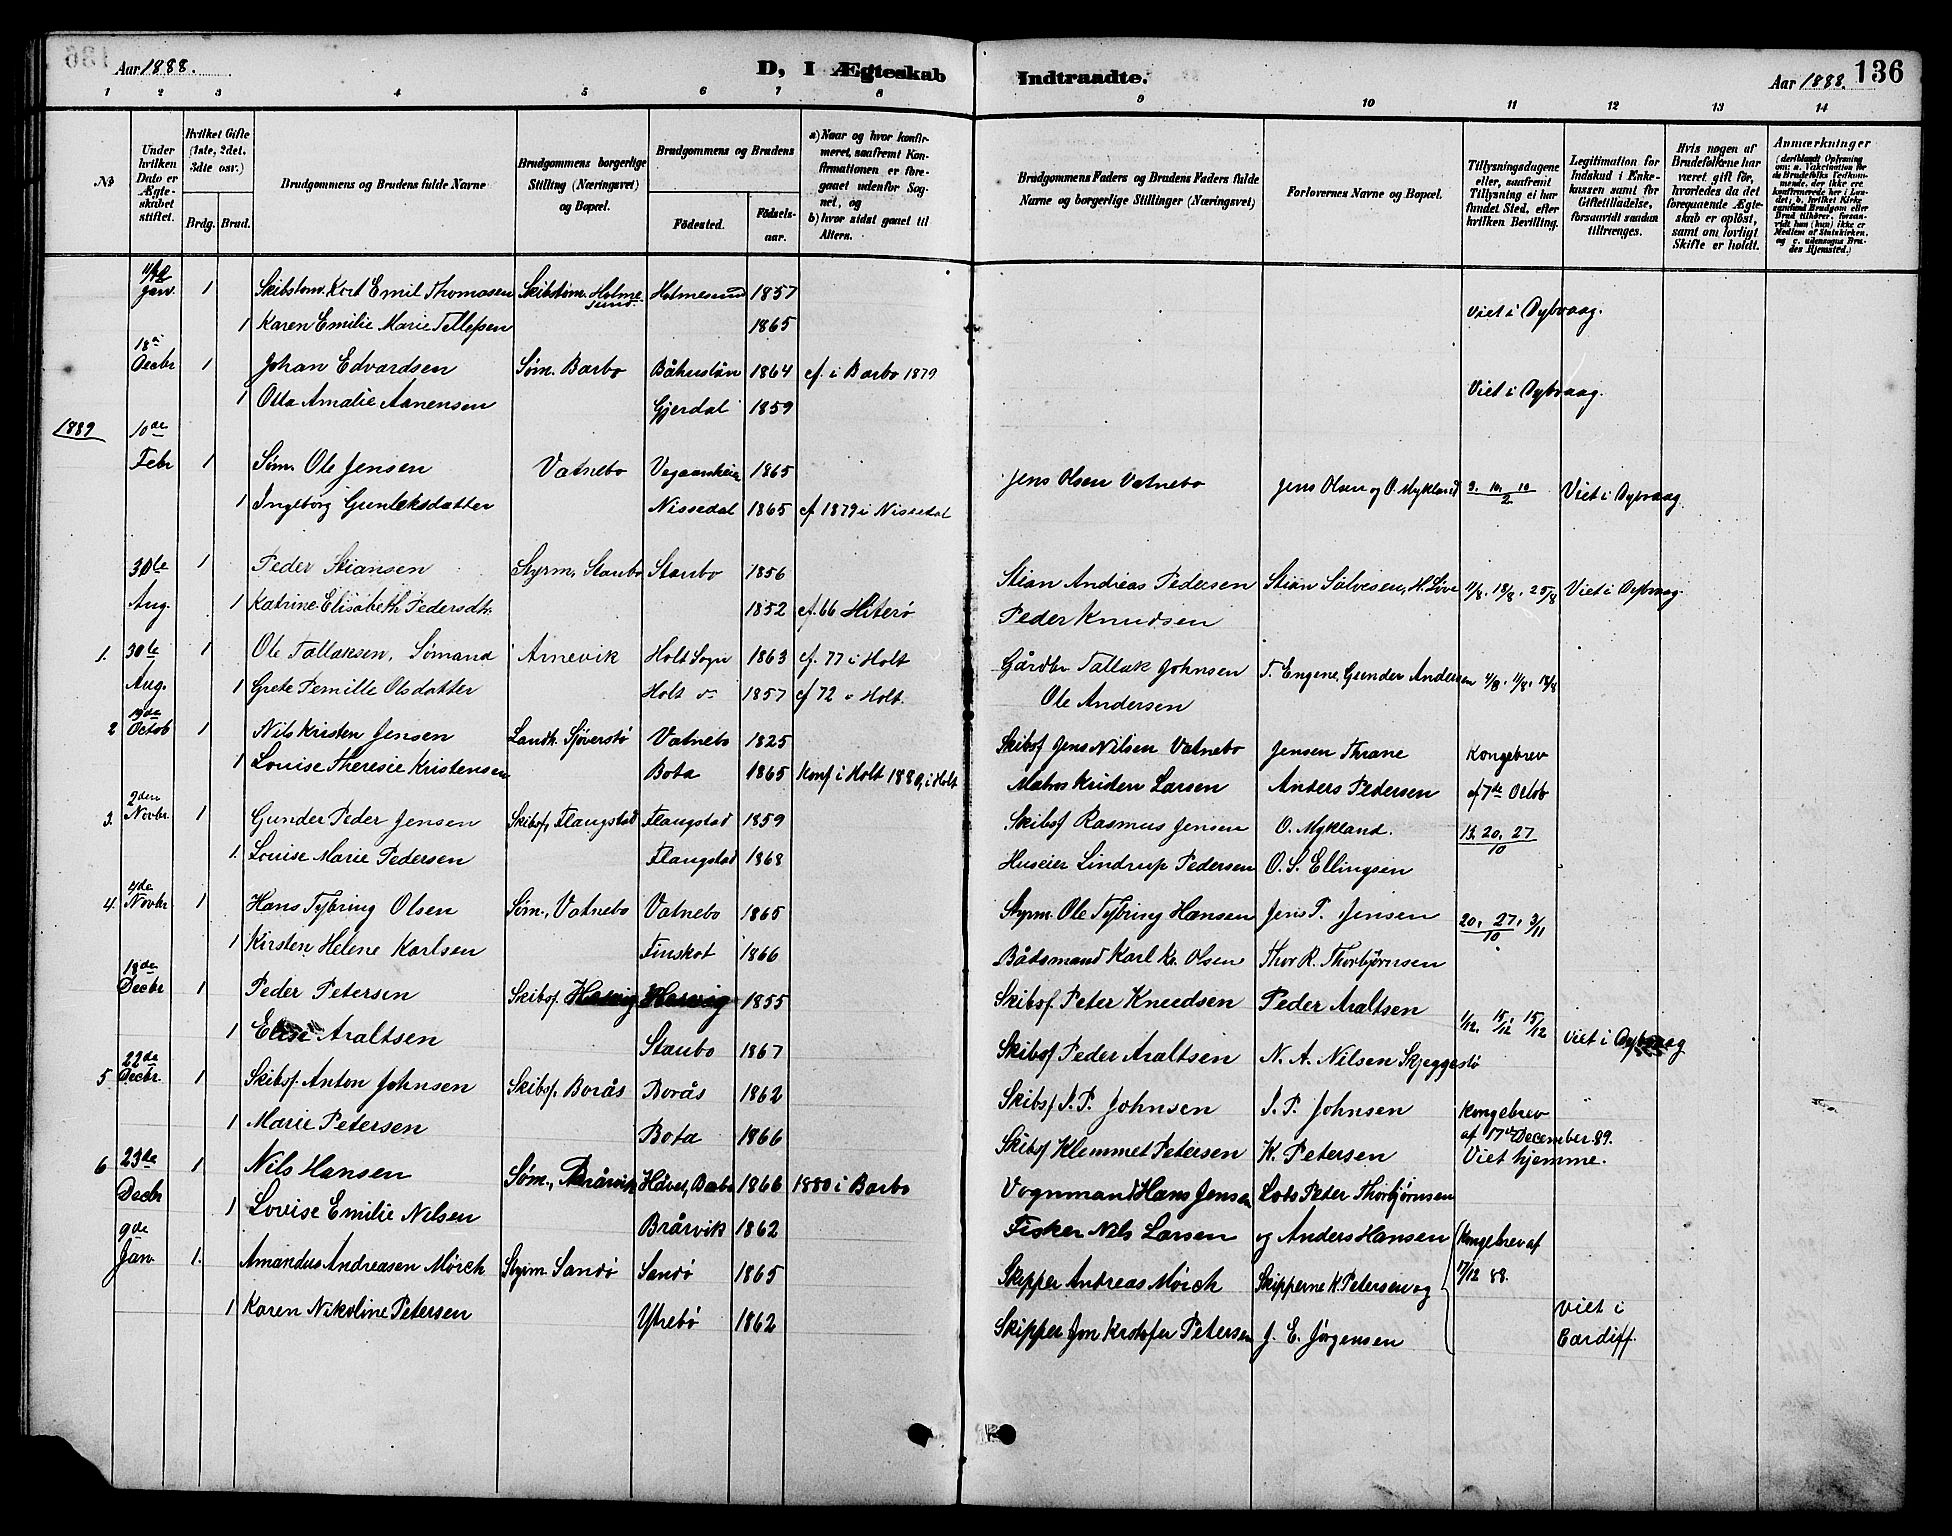 136
Aar 1888.
D, I Ægteskab Indtraadte.
Aar 1888.
1 2 3 4 5 6 7 8 9 10 11 12 13 14
No
Under hvilken Dato er Ægteskabet stiftet.
Hvilket Gifte (1ste, 2det, 3die osv.)
Brdg. Brud.
Brudgommens og Brudens fulde Navne
Brudgommens borgerlige Stilling (Næringsvei) og Bopæl.
Brudgommens og Brudens
Fødested. Fødselsaar.
a) Naar og hvor konfirmeret, saafremt Konfirmationen er foregaaet udenfor Sognet, og
b) hvor sidst gaaet til Alters.
Brudgommens Faders og Brudens Faders fulde Navne og borgerlige Stillinger (Næringsvei)
Forlovernes Navne og Bopæl.
Tillysningsdagene eller, saafremt Tillysning ei har fundet Sted, efter hvilken Bevilling.
Legitimation for Indskud i Enkekassen samt for Giftetilladelse, forsaavidt saadan tiltrænges.
Hvis nogen af Brudefolkene har været gift før, hvorledes da det foregaaende Ægteskab er opløst, samt om lovligt Skifte er holdt.
Anmærkninger
Janv. 1 Skibstøm. Kort Emil Thomasen Skibstøm. Holmesund Holmesund 1857
1 Karen Emilie Marie Tellefsen 1865 Viet i Dybvaag.
18de Decbr 1 Johan Edvardsen Søm. Barbo Båhuslän 1864 cf. i Barbo 1879
1 Otta Amalie Aanensen Gjerdal 1859 Viet i Dybvaag.
1889
10de Febr 1 Søm. Ole Jensen Vatnebo Vegaarsheien 1865 Jens Olsen Vatnebo Jens Olsen og O. Mykland Viet i Dybvaag.
1 Ingeborg Gunleksdatter Nissedal 1865 cf 1879 i Nissedal
30te Aug. 1 Peder Stiansen Styrm. Staubo Staubo 1856 Stian Andreas Pedersen Stian Salvesen, H. Love 11/8. 18/8. 25/8 Viet i Dybvaag.
1 Katrine Elisabeth Pedersdt. 1852 cf. 66 Hiterø. Peder Knudsen
1. 30te Aug. 1 Ole Tallaksen, Sømand Arnevik Holt Sogn 1863 cf. 77 i Holt Gårdbr Tallak Johnsen T. Engene, Gunder Andersen 4/8. 11/8. 18/8
1 Grete Pernille Olsdatter Holt 1857 cf 72 i Holt. Ole Andersen
2 19de Octob 1 Nils Kristen Jensen Landh. Sjøverstø Vatnebo 1825 Skibsf Jens Nilsen Vatnebo Jensen Thrane Kongebrev
1 Louise Theresie Kristensen Bota 1865 Konf i Holt 1880, i Holt Matros Kristen Larsen Anders Pedersen af 7de Octob
3. 2den Novbr. 1 Gunder Peder Jensen Skibsf, Flaugstad Flaugstad 1859 Skibsf Rasmus Jensen O. Mykland. 13. 20. 27/10
1. Louise Marie Pedersen Flaugstad 1868 Huseier Lindrup Pedersen O. S. Ellingsen
4. 4de Novbr 1 Hans Tybring Olsen Søm., Vatnebo Vatnebo 1865 Styrm. Ole Tybring Hansen Jens P. Jensen 20. 27./10 3/11
1 Kirsten Helene Karlsen Finskot 1866 Bådsmand Karl Kr. Olsen Thor R. Thorbjørnsen
18de Decbr 1 Peder Petersen Skibsf. 1855 Skibsf. Peter Knudsen Peder Araltsen 1/12. 15/12 15/12 Viet i Dybvaag
1 Elise Araltsen Staubo 1867 Skibsf Peder Araltsen N. A. Nilsen Skjeggestø
5. 22de Decbr. 1 Skibsf. Anton Johnsen Skibsf. Borås Borås 1862 Skibsf J. P. Johnsen J. P. Johnsen Kongebrev
1 Marie Petersen Bota 1866 Skibsf Klemmet Petersen K. Petersen af 17de December 89. Viet hjemme.
6 23de Decbr 1 Nils Hansen Søm., Brårvik Havet, Barbo 1866 1880 i Barbo Vognmand Hans Jensen Lods Peter Thorbjørnsen
1 Lovise Emilie Nilsen Brårvik 1862 Fisker Nils Larsen og Anders Hansen
9de Jan. 1. Amandus Andreasen Mørch Styrm Sandø Sandø 1865 Skipper Andreas Mørch Skipperne K. Petersen og Kongebrev af 17/12 88.
1 Karen Nikoline Petersen Ytrebø 1862 Skipper Jon Kristofer Petersen J. E. Jørgensen Viet i Cardiff.